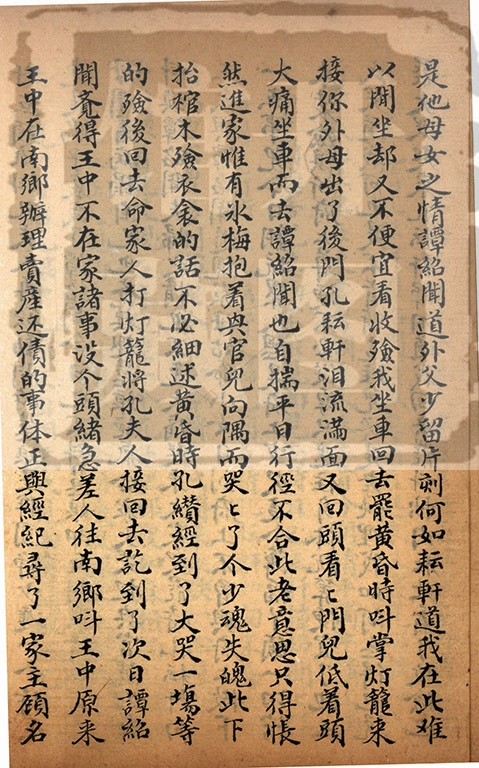 是他母女之情譚紹聞道外父少留片刻何如耘軒道我在此难
以閒坐却又不便宜看收殮我坐車回去罷黃昏時呌掌灯籠来
接你外母出了後門孔耘軒泪流滿面又回頭看々門兒低着頭
大痛坐車而去譚紹聞也自揣平日行徑不合此老意思只得悵
然進家惟有冰梅抱着興官兒向隅而哭々了个少魂失魄此下
抬棺木殮衣衾的話不必細述黃昏時孔纉經到了大哭一塲等
的殮後回去命家人打灯籠將孔夫人接回去訖到了次日譚紹
聞竟得王中不在家諸事没个頭緒急差人往南鄉呌王中原来
王中在南鄉辦理賣産还債的事体正與經紀尋了一家主顧名